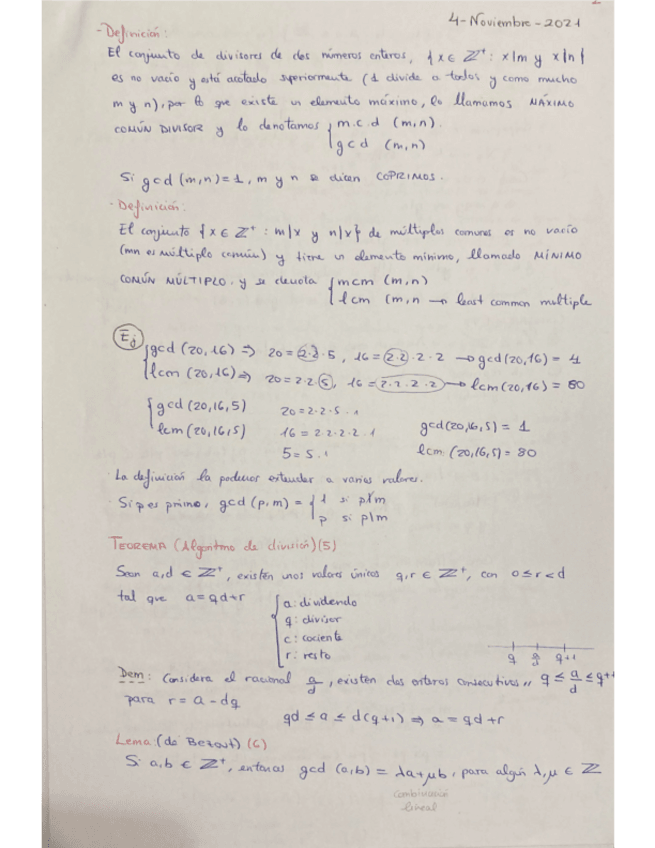 4-Noviembre-2021
- Definición:
El conjunto de divisores de dos números enteros, {x ∈ ℤ⁺ : x|m y x|n}
es no vacío y está acotado superiormente (1 divide a todos y como mucho
m y n), por lo que existe un elemento máximo, lo llamamos MÁXIMO
COMÚN DIVISOR y lo denotamos { m.c.d (m,n).
gcd (m,n)
Si gcd (m,n)=1, m y n se dicen COPRIMOS.
· Definición:
El conjunto {x ∈ ℤ⁺ : m|x y n|x} de múltiplos comunes es no vacío
(mn es múltiplo común) y tiene un elemento mínimo, llamado MÍNIMO
COMÚN MÚLTIPLO. y se denota { mcm (m,n)
lcm (m,n → least common multiple
Ej
{ gcd (20,16) ⇒ 20=2·2·5, 16=2·2·2·2 → gcd(20,16) = 4
lcm (20,16) ⇒ 20=2·2·5, 16=2·2·2·2 → lcm(20,16) = 80
{ gcd (20,16,5) 20=2·2·5·1
lcm (20,16,5) 16=2·2·2·2·1 gcd(20,16,5) = 1
5=5·1 lcm (20,16,5) = 80
· La definición la podemos extender a varios valores.
· Si p es primo, gcd (p,m) = { 1 si p∤m
p si p|m
TEOREMA (Algoritmo de división)(5)
Sean a,d ∈ ℤ⁺, existen unos valores únicos q,r ∈ ℤ⁺, con 0≤r<d
tal que a=qd+r { a: dividendo
q: divisor
c: cociente
r: resto
q q+1
Dem: Considera el racional a/d, existen dos enteros consecutivos q ≤ a/d ≤ q+1
para r = a - dq
qd ≤ a ≤ d(q+1) ⇒ a = qd+r
Lema: (de Bezout) (6)
Si a,b ∈ ℤ⁺, entonces gcd (a,b) = λa+μb, para algún λ,μ ∈ ℤ
combinación
lineal